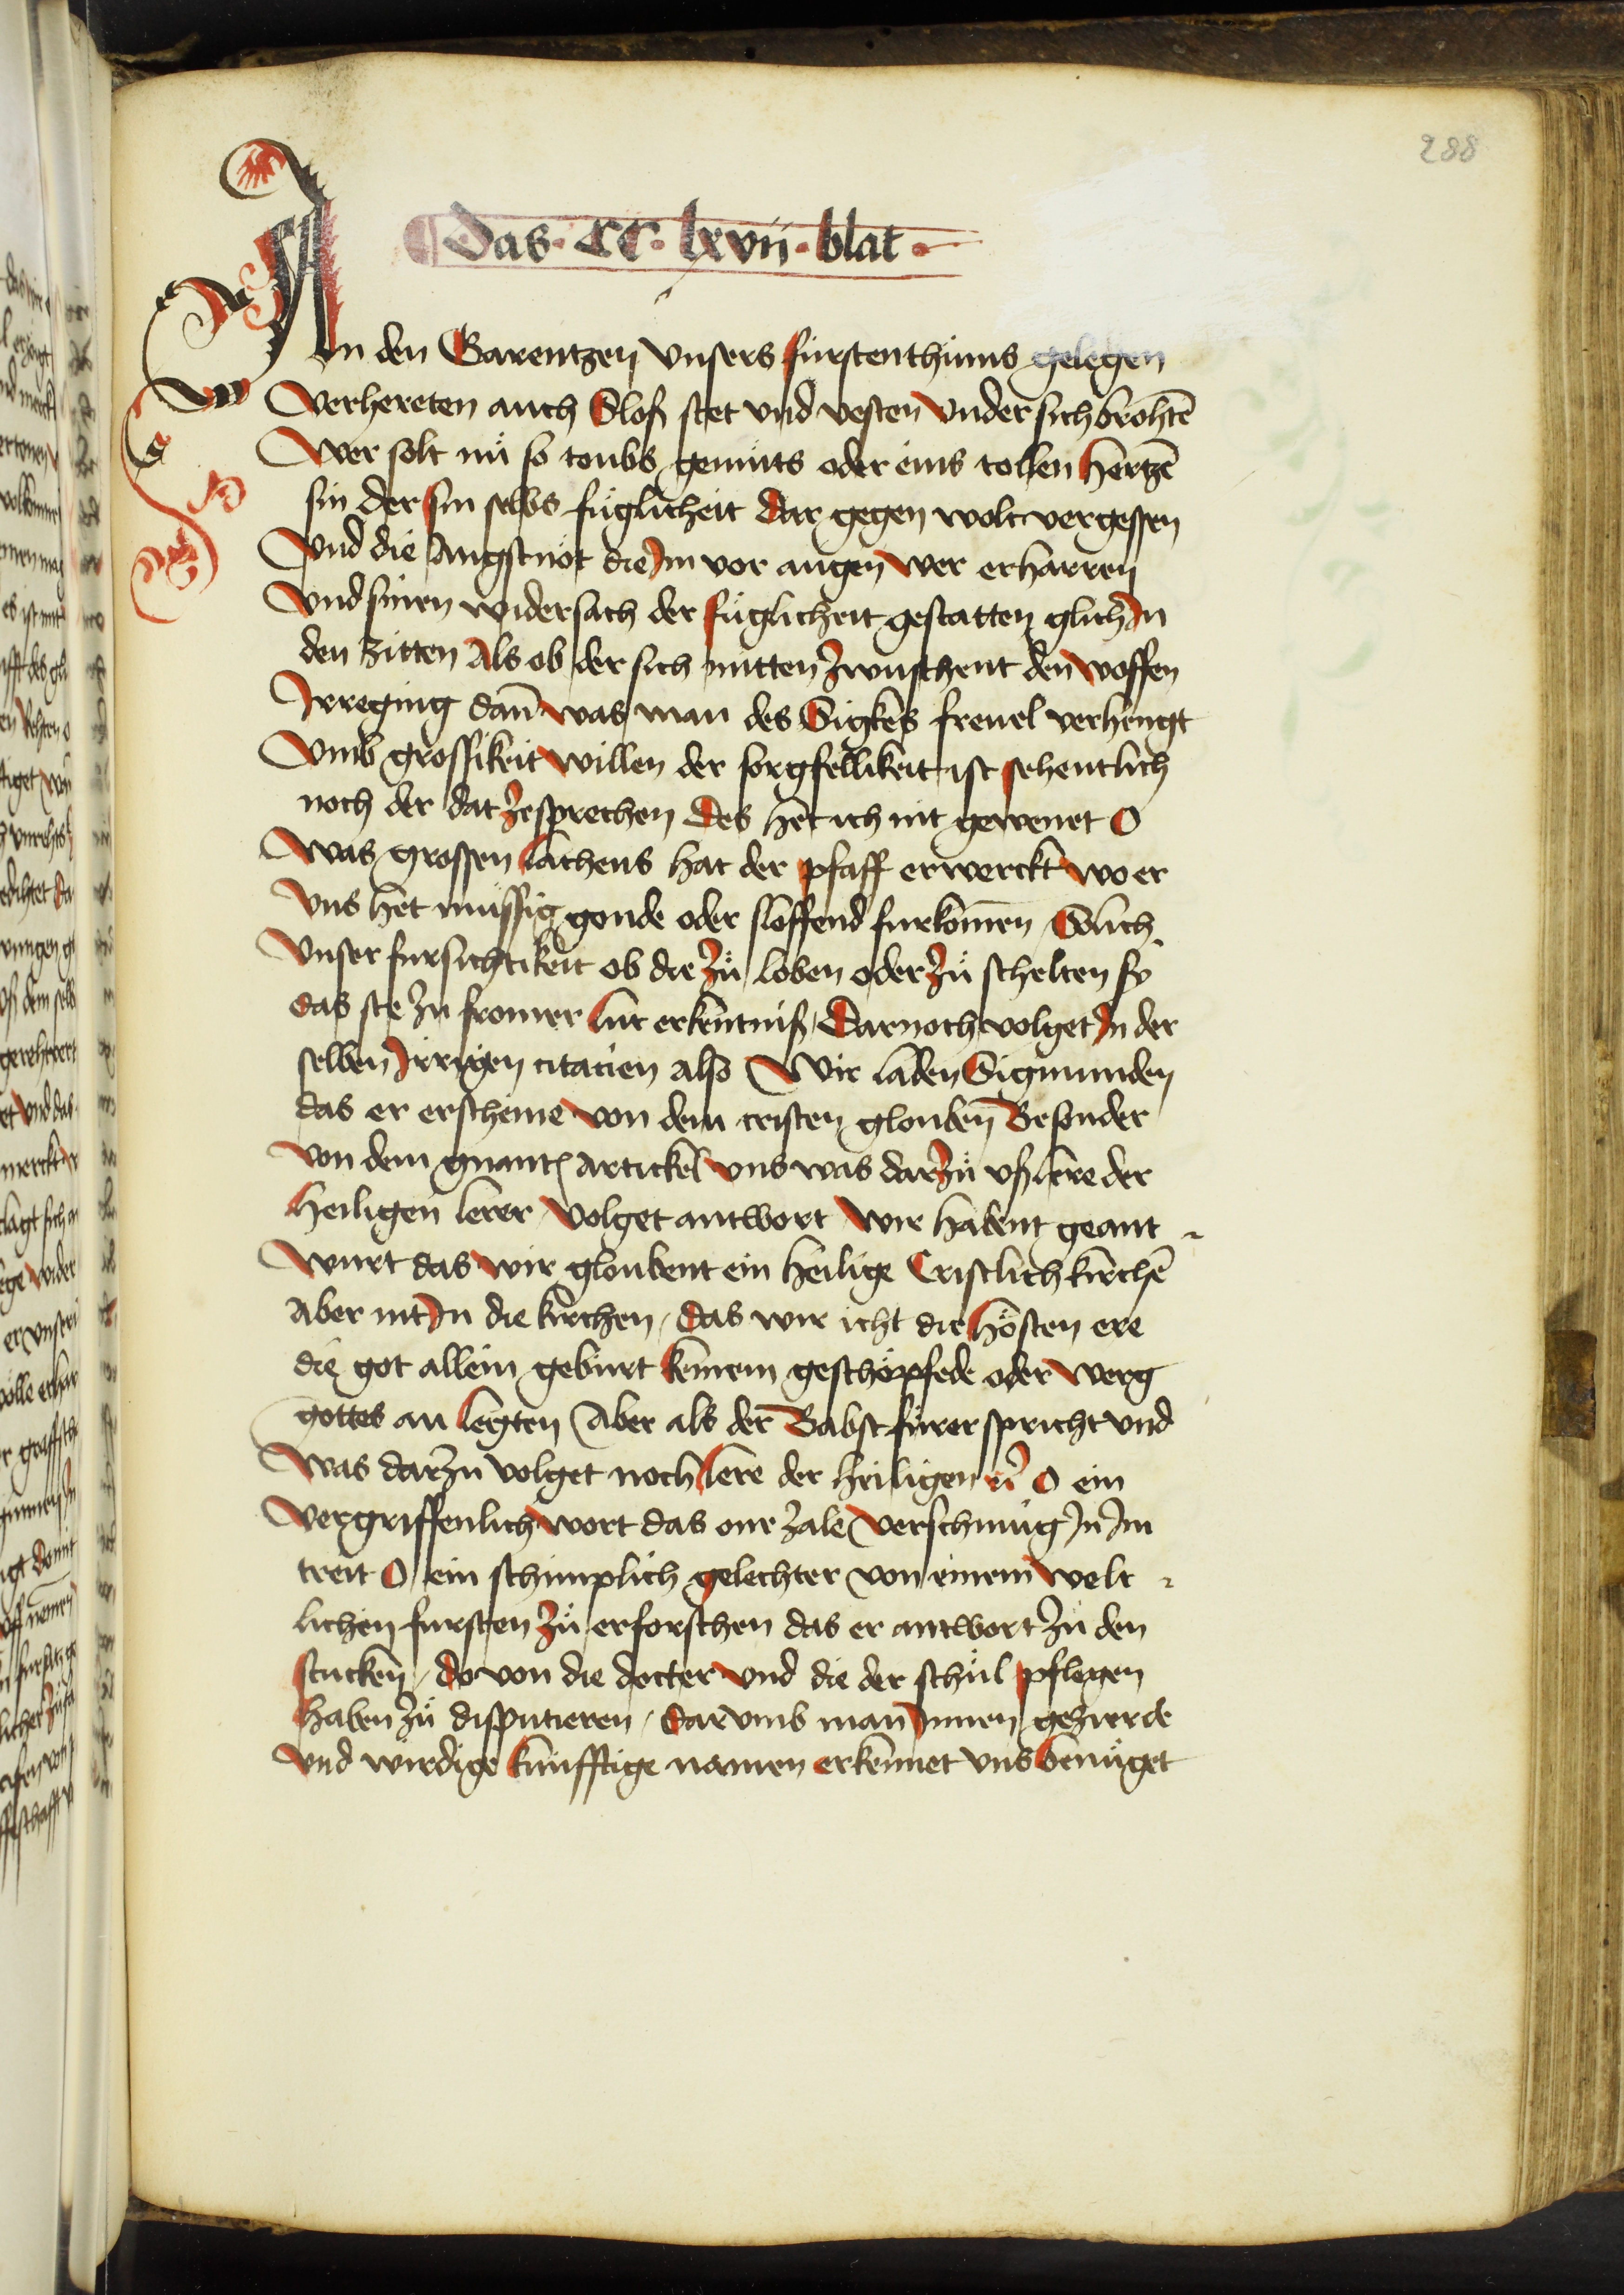 288
Das · CC · lxvii · blat ·
An den Garentzen vnsers fürstenthüms gelegen
verhereten auch Slosß stet vnd vesten vnder sich brohtē
Wer solt nü so toubs gemüts oder eins tollen hertzē
sin der sin selbs füglicheit dar gegen wolt vergessen
Vnd die Angstnöt die Im vor augen wer erharren
Vnd sinen widersach der füglicheit gestatten glich In
den zitten Als ob der sich mitten zwuschent den woffen
Irreging dan̄ was man des Sigkes freuel verhengt
Vmb grossikeit willen der sorgfellikeit ist sehentlich
noch der dat zesprechen Des het ich nit gewenet O
Was grossen lachens hat der pfaff erwerckt wo er
Vns het müssig gonde oder sloffend furkomen Glich
Vnser fursichtikeit ob die zü loben oder zü schelten sy
das ste zu fromer lüt erkentniß / Darnoch volget In der
selben Irrigen citacien also Wir laden Sigmunden
das er erschine von dem cristen glouben Besonder
von dem gnantē Artickel vns was darzü vß lere der
heiligen lerer volget antwort Wir habent geant
wurt das wir gloubent ein heilige Cristlich kirchē
Aber nit In die kirchen / das wir icht die hösten ere
die got allein gebürt keinem geschöpfede oder Werg
gottes an legten Aber als der Babst fürer spricht vnd
Was darzu volget noch lere der heiligen O ein
vergriffenlich wort das one zale verschmüg In Im
treit O ein schimplich gelechter von einem welt
lichen fursten zü erforschen das er antwort zü den
stucken / do von die docter vnd die der schül pflegen
haben zü disputieren / Darvmb man Innen gezierde
vnd wirdige künfftige namen erkennet vns benüget